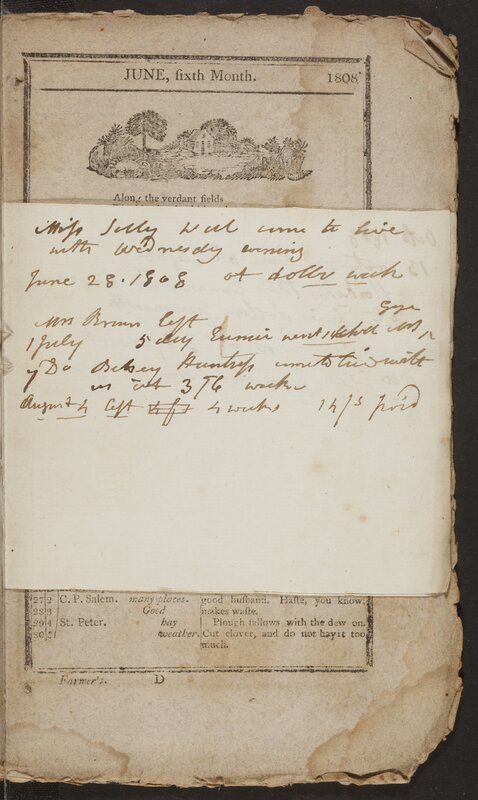 JUNE, sixth Month. 1808
Along the verdant fields
Miss Solly Well came to live
with Wednesday evening
June 28. 1808 at dollar week
Mrs Brown left
1 July 5 day went
7 Do Betsey
us att 3/6 week
August 4 left 4 weeks 14/5 paid
27 2 C. P. Salem. many places. good husband. Haste, you know,
28 3 Good makes waste.
29 4 St. Peter. hay Plough fallows with the dew on.
30 5 weather. Cut clover, and do not hay it too
much.
Farmer's. D